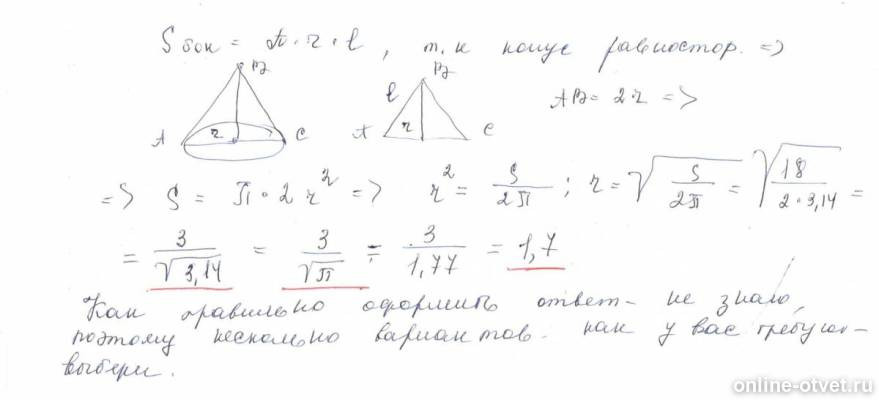 S бок = π · r · l , т.к конус равностор. =>
B
B
l
AB = 2·r =>
A r C
A r C
=> S = π · 2 r² => r² = S/2π ; r = √(S/2π) = √(18/2·3,14) =
= 3/√3,14 = 3/√π = 3/1,77 = 1,7
Как правильно оформить ответ - не знаю,
поэтому несколько вариантов. как у вас требуют -
выбери.
online-otvet.ru